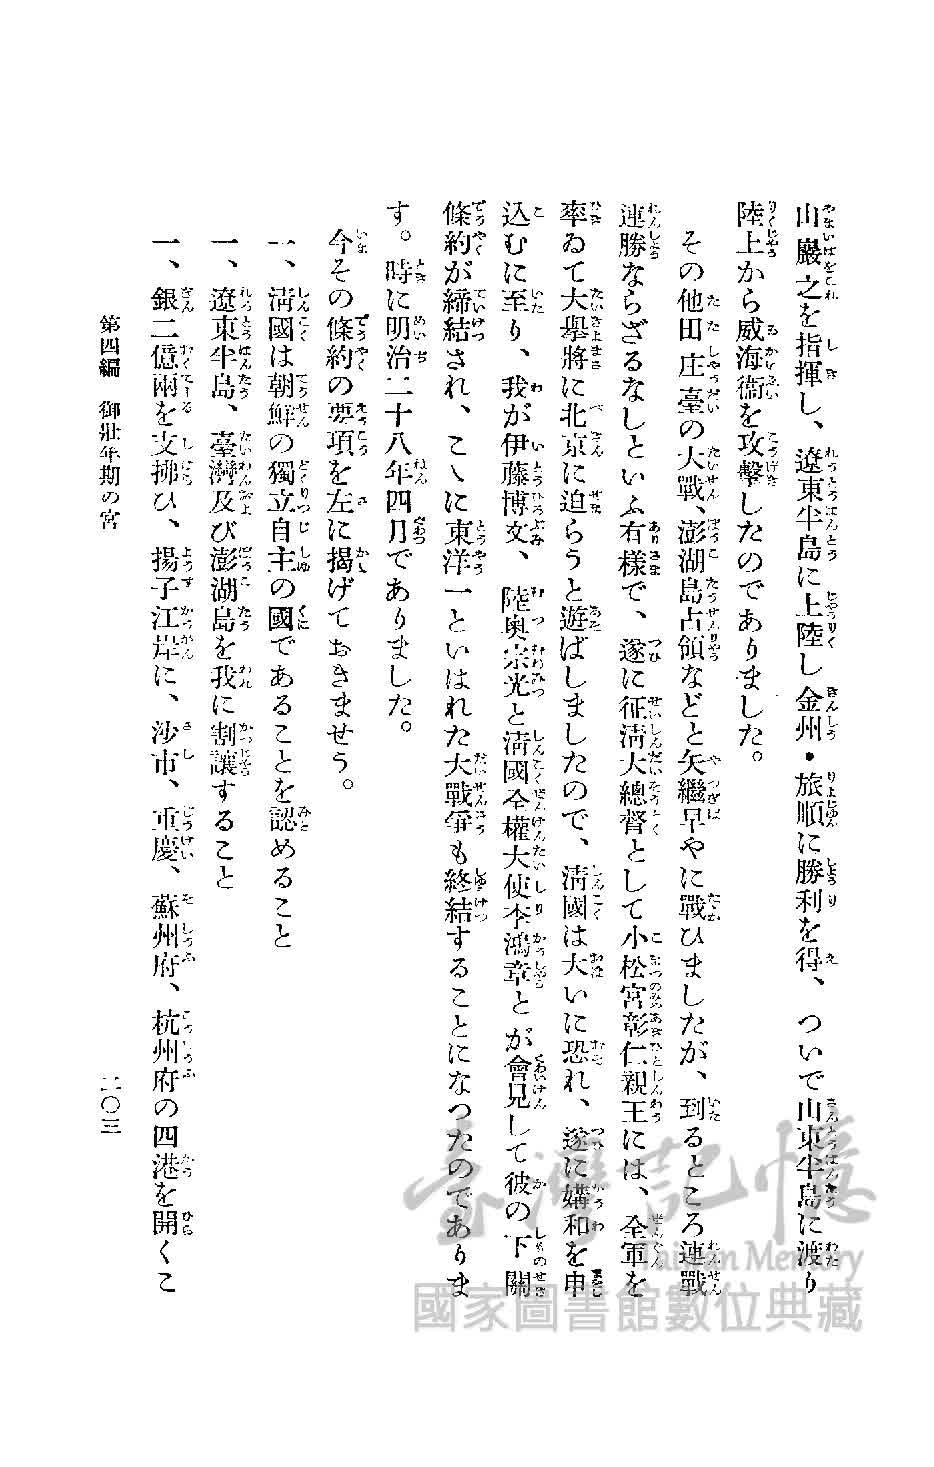 山巖之を指揮し、遼東半島に上陸し金州・旅順に勝利を得、ついで山東半島に渡り
陸上から威海衞を攻擊したのでありました。
その他田庄臺の大戰、澎湖島占領などと矢繼早やに戰ひましたが、到るところ連戰
連勝ならざるなしといふ有樣で、遂に征淸大總督として小松宮彰仁親王には、全軍を
率ゐて大擧將に北京に迫らうと遊ばしましたので、淸國は大いに恐れ、遂に媾和を申
込むに至り、我が伊藤博文、陸奧宗光と淸國全權大使李鴻章とが會見して彼の下關
條約が締結され、こゝに東洋一といはれた大戰爭も終結することになつたのでありま
す。時に明治二十八年四月でありました。
今その條約の要項を左に揭げておきませう。
一、淸國は朝鮮の獨立自主の國であることを認めること
一、遼東半島、臺灣及び澎湖島を我に割讓すること
一、銀二億兩を支拂ひ、揚子江岸に、沙市、重慶、蘇州府、杭州府の四港を開くこ
第四編 御壯年期の宮
二〇三
臺灣記憶
Taiwan Memory
國家圖書館數位典藏